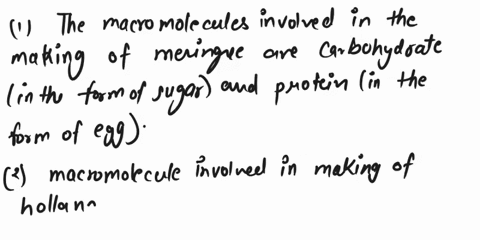 (1) The macromolecules involved in the
making of meringue are carbohydrate
(in the form of sugar) and protein (in the
form of egg).
(2) macromolecule involved in making of
hollan